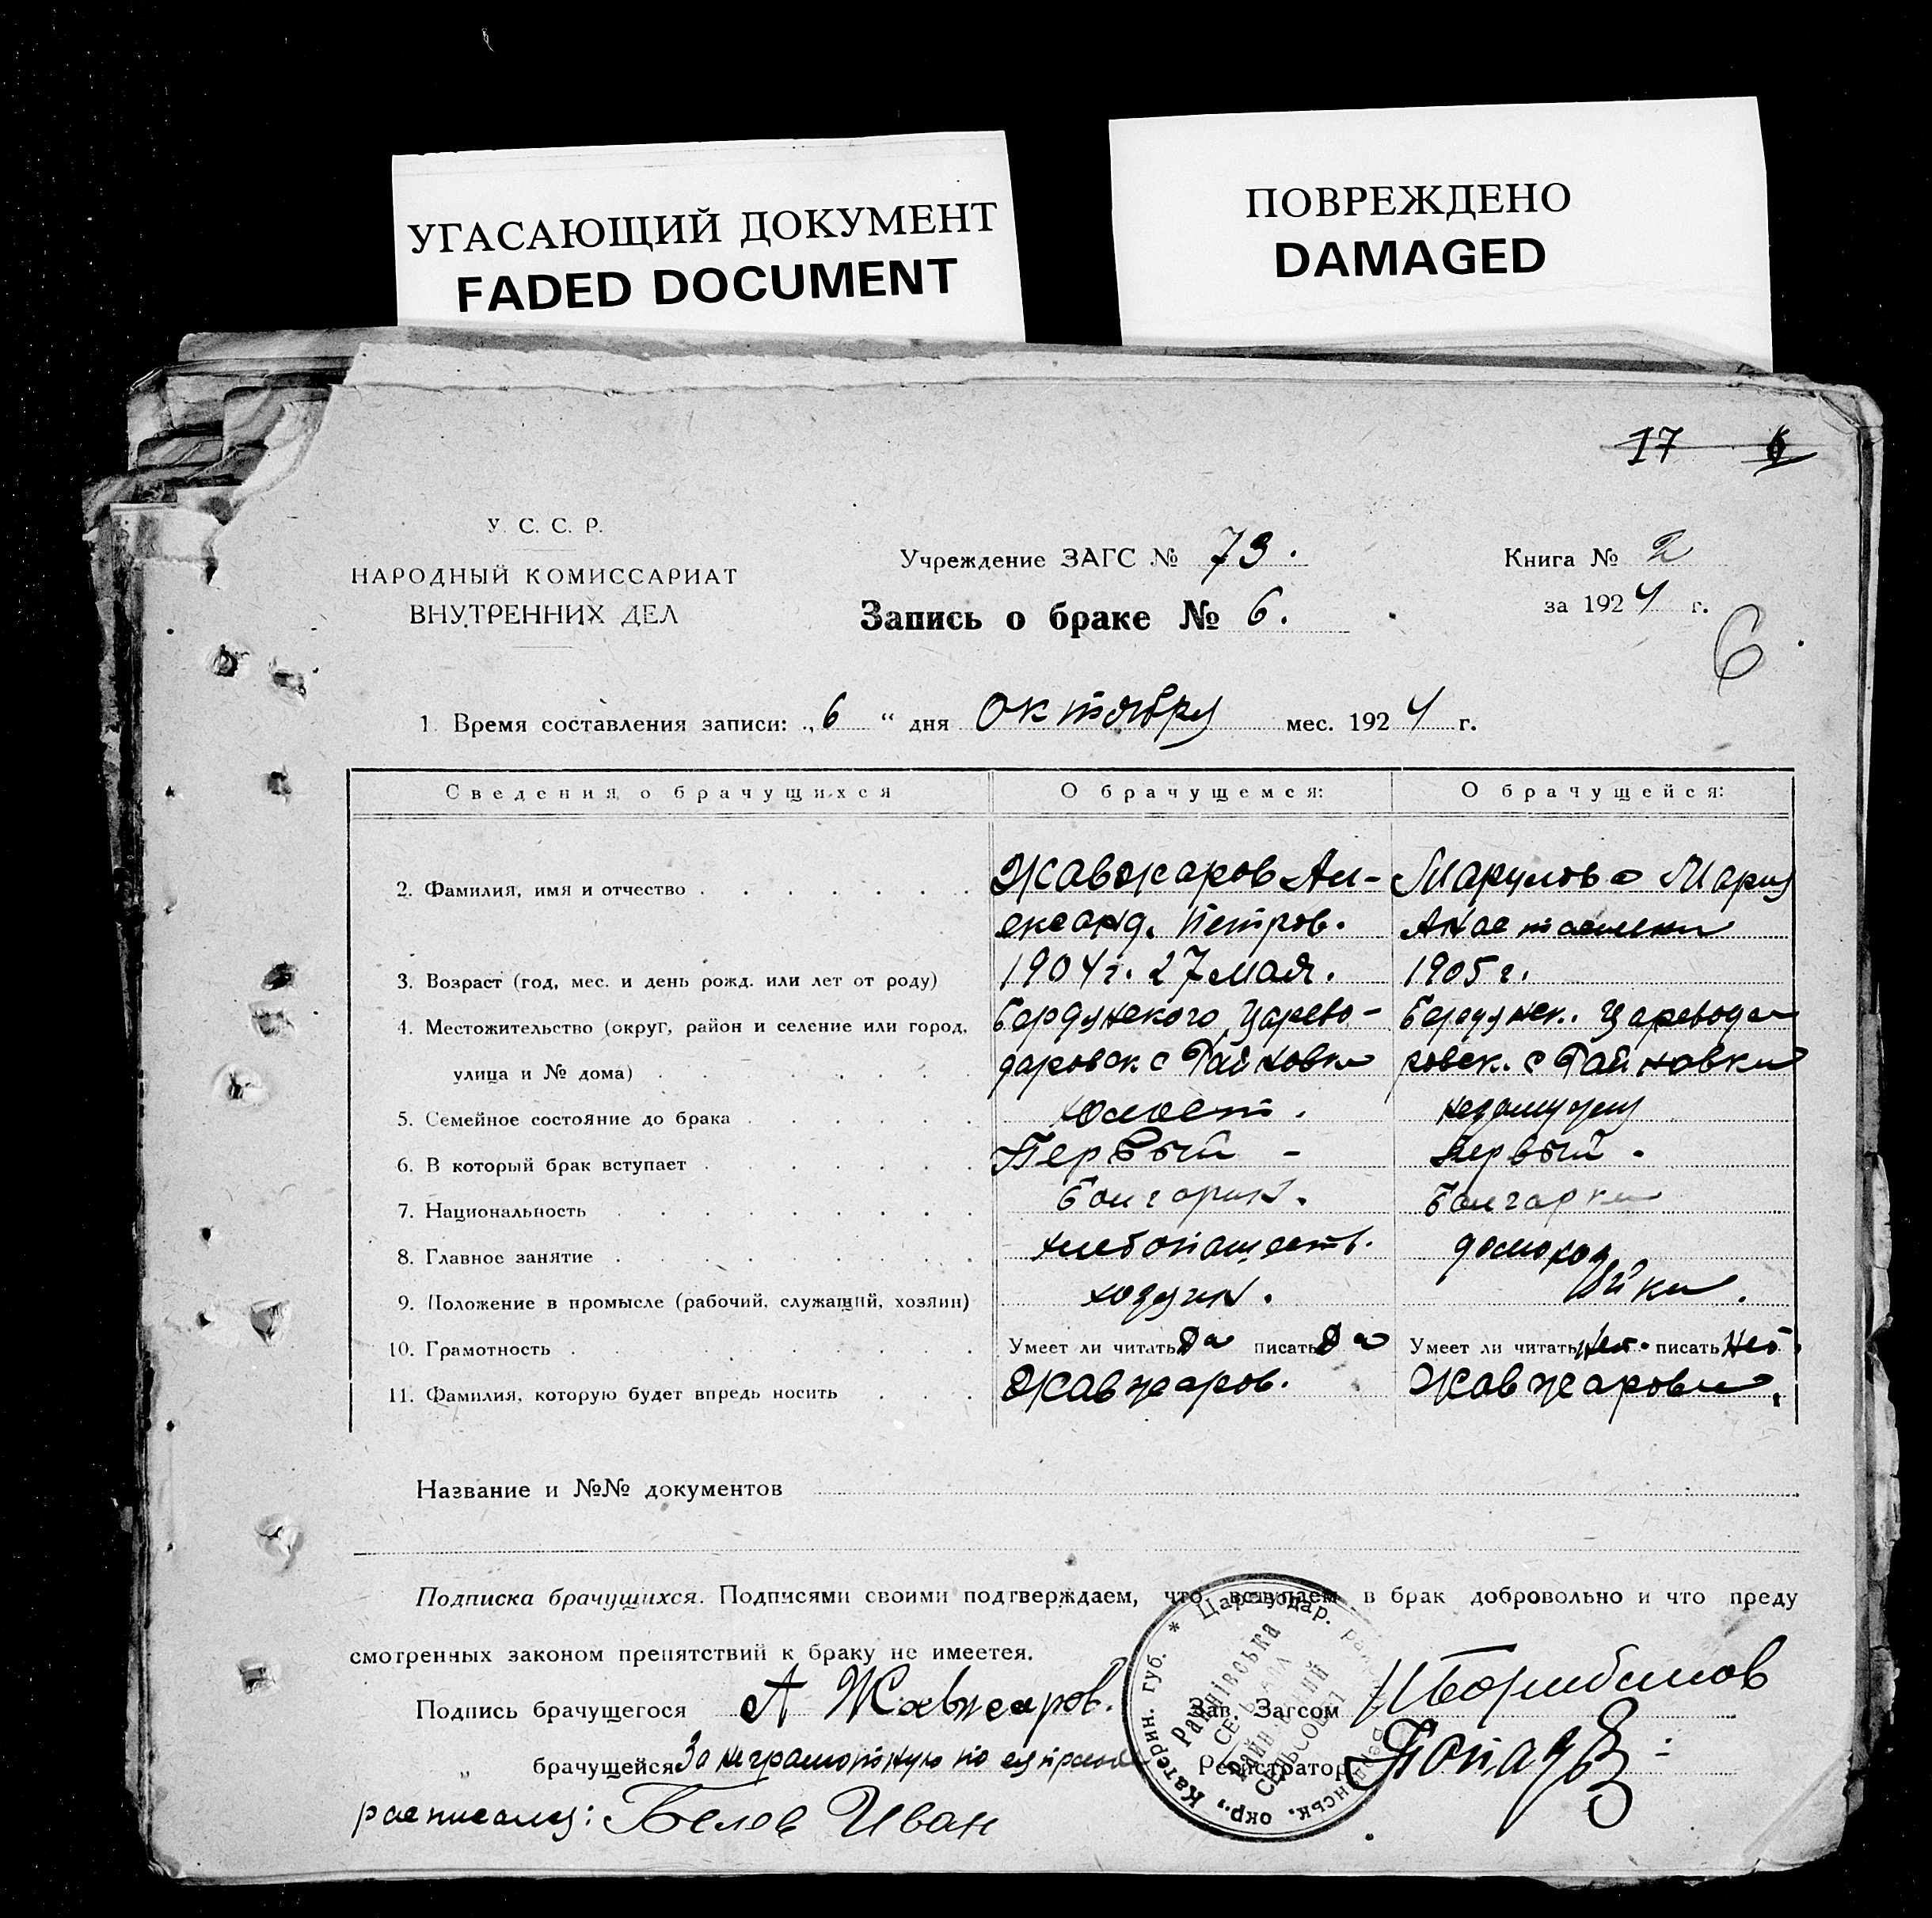 УГАСАЮЩИЙ ДОКУМЕНТ
FADED DOCUMENT
ПОВРЕЖДЕНО
DAMAGED
17 6
У. С. С. Р.
НАРОДНЫЙ КОМИССАРИАТ
ВНУТРЕННИХ ДЕЛ
Учреждение ЗАГС № 73.
Запись о браке № 6.
Книга № 2
за 1924 г.
6
1. Время составления записи: „6“ дня октября мес. 1924 г.
Сведения о брачущихся О брачущемся: О брачущейся:
2. Фамилия, имя и отчество Жавжаров Ал- Марулова Мария
ександ. Петров.
3. Возраст (год, мес. и день рожд. или лет от роду) 1904 г. 27 мая. 1905 г.
4. Местожительство (округ, район и селение или город, Бердянского Царево- Бердянск. Царевода
улица и № дома) даровск с Райновка ровск. с Райновка
5. Семейное состояние до брака холост. незамужняя
6. В который брак вступает Первый - первый.
7. Национальность болгарин. болгарка
8. Главное занятие хлебопашеств. домохозяйка.
9. Положение в промысле (рабочий, служащий, хозяин) хозяин.
10. Грамотность Умеет ли читать Да писать Да Умеет ли читать нет. писать нет.
11. Фамилия, которую будет впредь носить Жавжаров. Жавжарова.
Название и №№ документов
Подписка брачущихся. Подписями своими подтверждаем, что вступаем в брак добровольно и что преду
смотренных законом препятствий к браку не имеется.
Подпись брачущегося А Жавжаров. Зав. Загсом
„ брачущейся За неграмотную по ея прозб Регистратор
расписался: Белов Иван
* Цареводар. район, Бердянськ. окр., Катерин. губ.
Райнівська
СЕЛЬРАДА
Райновский
СЕЛЬСОВЕТ